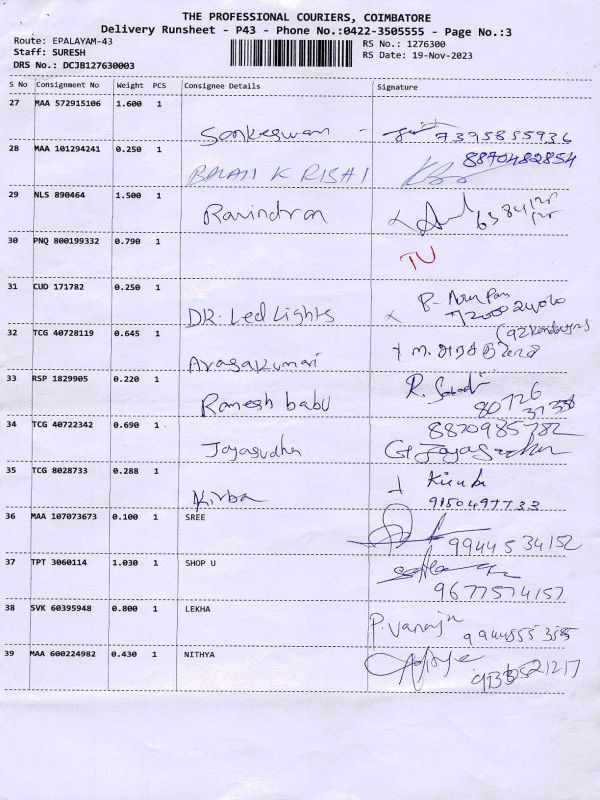 THE PROFESSIONAL COURIERS, COIMBATORE
Delivery Runsheet - P43 - Phone No.:0422-3505555 - Page No.:3
Route: EPALAYAM-43
RS No.: 1276300
Staff: SURESH
RS Date: 19-Nov-2023
DRS No.: DCJB127630003
S No Consignment No Weight PCS Consignee Details Signature
27 MAA 572915106 1.600 1
Sankeswari - 7395855936
28 MAA 101294241 0.250 1 8870482854
BALAJI K RISHI
29 NLS 890464 1.500 1
Ravindran
30 PNQ 800199332 0.790 1
TU
31 CUD 171782 0.250 1
DR. Led Lights
32 TCG 40728119 0.645 1
Arasakumari
33 RSP 1829905 0.220 1
Ramesh babu 80726
34 TCG 40722342 0.690 1 8870985782
Jayasudha G Jayasudha
35 TCG 8028733 0.288 1
Kirba 9150497733
36 MAA 107073673 0.100 1 SREE
99445 34152
37 TPT 3060114 1.030 1 SHOP U
9677574157
38 SVK 60395948 0.800 1 LEKHA
P. Vanaja
39 MAA 600224982 0.430 1 NITHYA